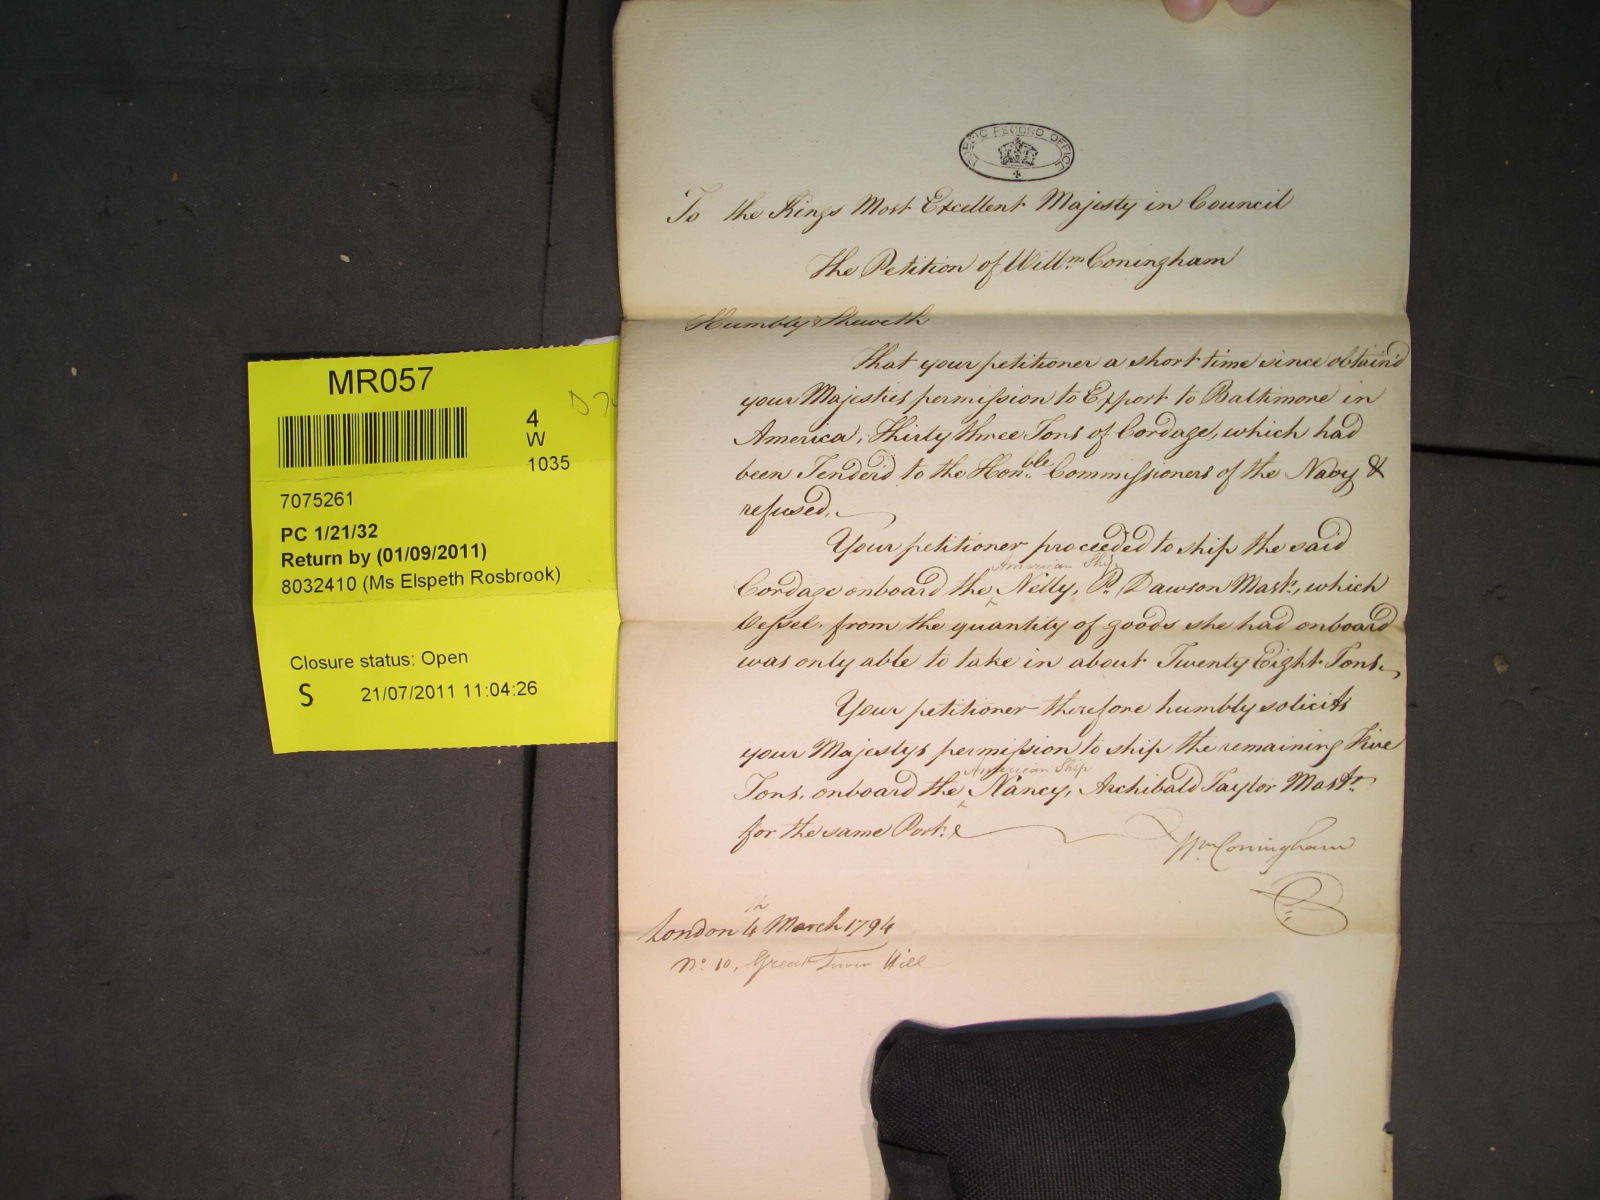 PUBLIC RECORD OFFICE
To the Kings Most Excellent Majesty in Council
The Petition of Will.m Coningham
Humbly Sheweth
That your petitioner a short time since obtain'd
your Majesties permission to Export to Baltimore in
America, Thirty three Tons of Cordage, which had
been Tender'd to the Hon.ble Commissioners of the Navy &
refused.
Your petitioner proceeded to ship the said
American Ship
Cordage onboard the ^ Nelly, P. Dawson Mast.r, which
Vessel from the quantity of goods she had onboard
was only able to take in about Twenty Eight Tons.
Your petitioner therefore humbly solicits
your Majestys permission to ship the remaining Five
American Ship
Tons, onboard the ^ Nancy, Archibald Taylor Mast.r
for the same Port.
Wm Coningham
London 4th March 1794
No. 10, Great Tower Hill
MR057
4
W
1035
7075261
PC 1/21/32
Return by (01/09/2011)
8032410 (Ms Elspeth Rosbrook)
Closure status: Open
S 21/07/2011 11:04:26